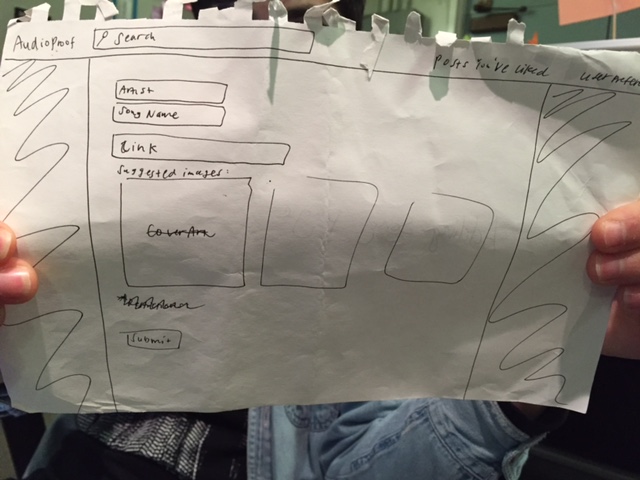 AudioProof
Search
Posts You've Liked
User
Artist
Song Name
Link
Suggested images:
Cover Art
Submit